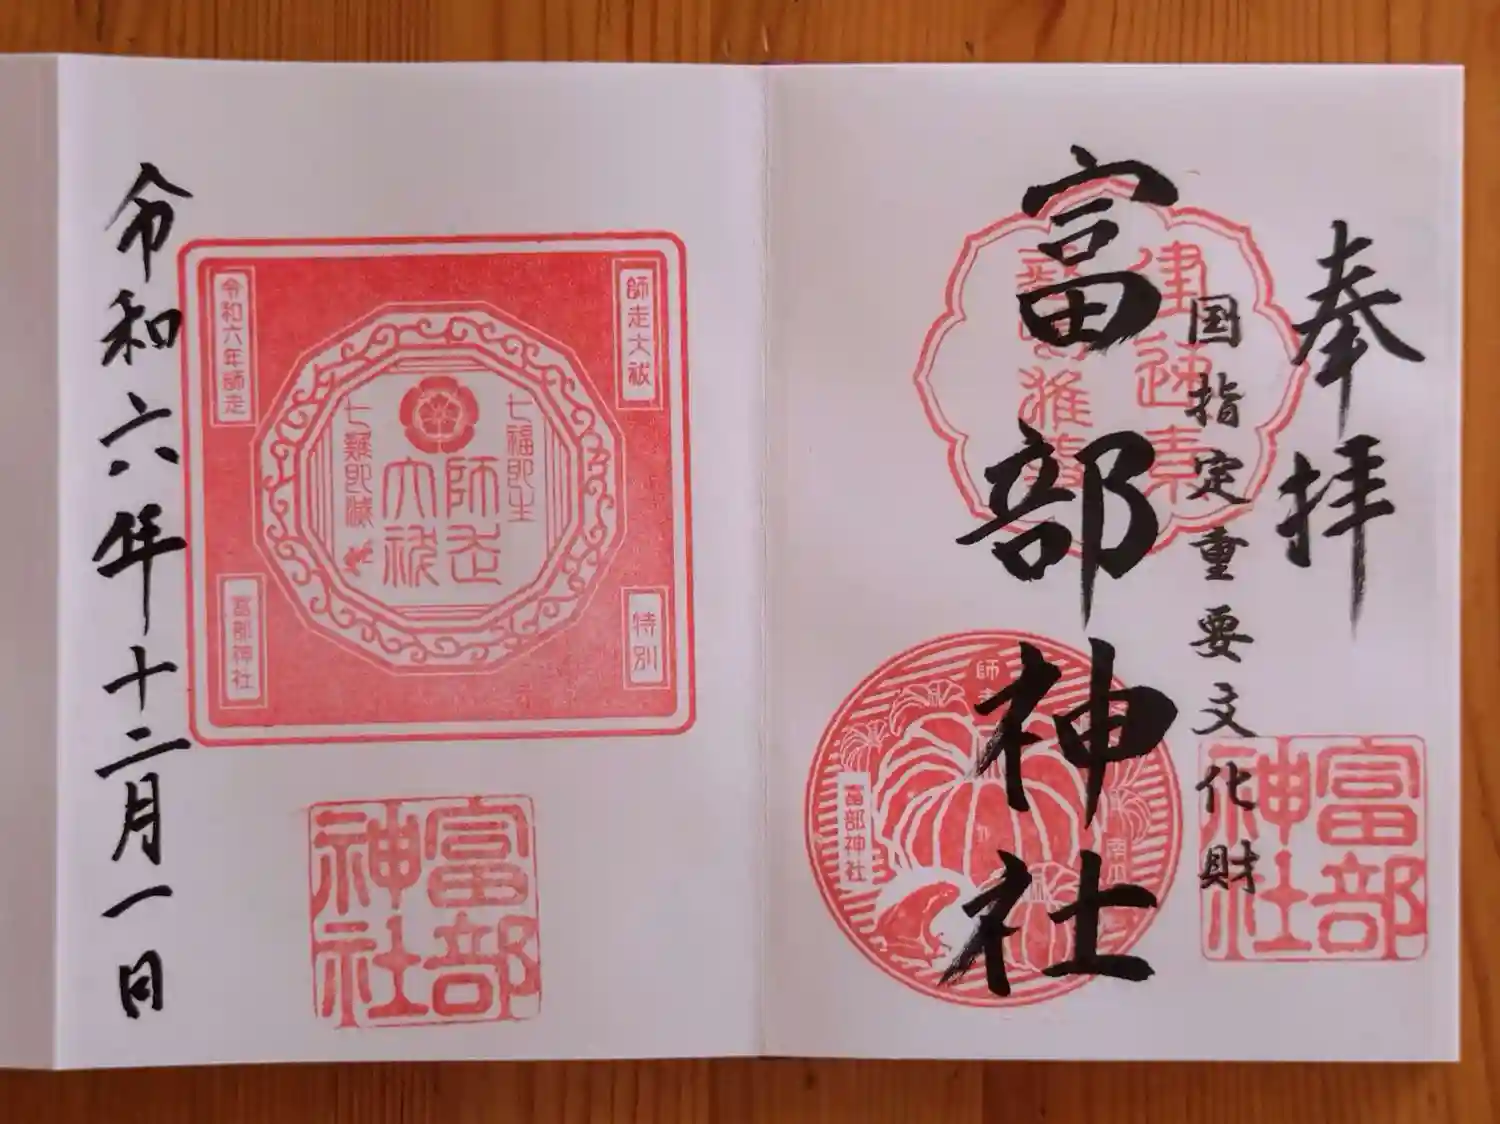 奉拝
国指定重要文化財
富部神社
建速素
師走
富部神社
富部神社
令和六年十二月一日
師走大祓
特別
令和六年師走
富部神社
七福即生
師走
大祓
七難即滅
富部神社